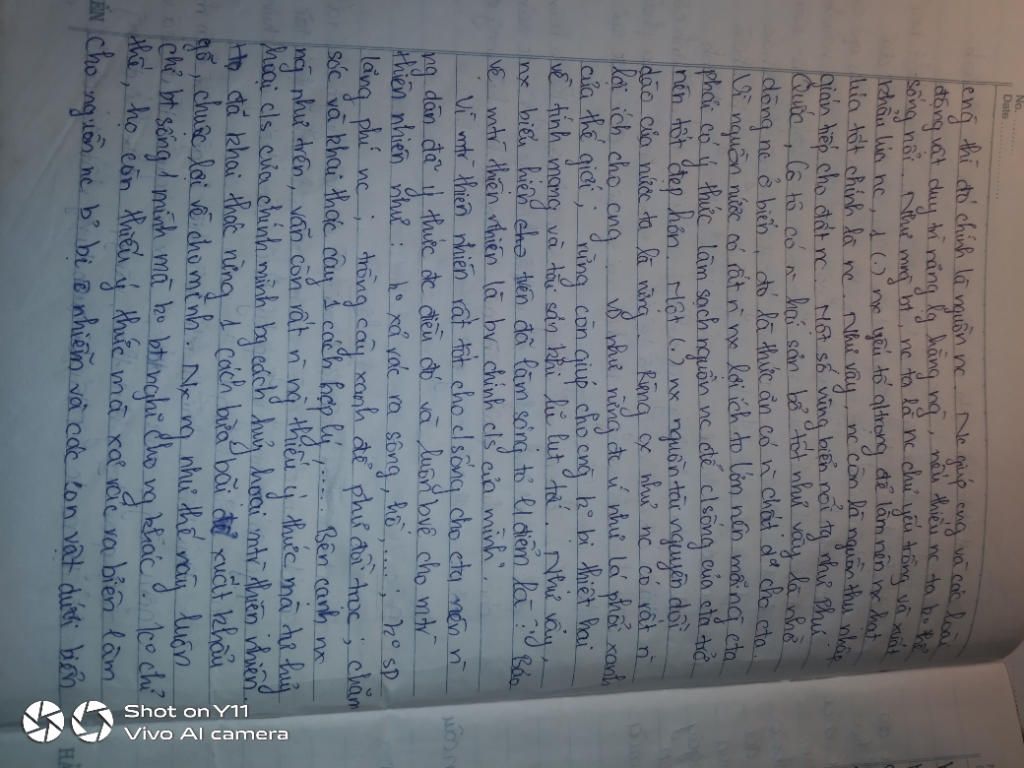 No.
Date
cng thì đó chính là nguồn nc. Nc giúp cng và các loài
động vật duy trì năng lg hằng ng, nếu thiếu nc ta ko thể
sống nổi. Như mng bt, nc ta là nc chủ yếu trồng và xuất
khẩu lúa nc, 1 (.) nx yếu tố qtrong để làm nên nx hạt
lúa tốt chính là nc. Như vậy, nc còn là nguồn thu nhập
gián tiếp cho đất nc. Một số vùng biển nổi tg như Phú
Quốc, Cô tô có n hải sản bổ tốt như vậy là nhờ
dòng nc ở biển, đó là thức ăn có n chất d² cho cta
Vì nguồn nước có rất n nx lợi ích to lớn nên mỗi ng cta
phải có ý thức làm sạch nguồn nc để c/sống của cta trở
nên tốt đẹp hơn. Một (.) nx nguồn tài nguyên dồi
dào của nước ta là rừng. Rừng cx như nc có rất n
lợi ích cho cng. Vd như rừng đc ví như lá phổi xanh
của thế giới; rừng còn giúp cho cng ko bị thiệt hại
về tính mạng và tài sản khi lũ lụt tới. Như vậy,
nx biểu hiện cho trên đã làm sáng tỏ q/điểm là: "Bảo
vệ mtr thiên nhiên là bv chính c/s của mình".
Vì mtr thiên nhiên rất tốt cho c/sống cho cta nên n
ng dân đã ý thức đc điều đó và luôn bvệ cho mtr
thiên nhiên như: ko xả rác ra sông, hồ,....; ko sd
lãng phí nc; trồng cây xanh để phủ đồi trọc; chăm
sóc và khai thác cây 1 cách hợp lý;..... Bên cạnh nx
ng như trên, vẫn còn rất n ng thiếu ý thức mà tự hủy
hoại c/s của chính mình bg cách hủy hoại mtr thiên nhiên.
Họ đã khai thác rừng 1 cách bừa bãi để xuất khẩu
gỗ, chuộc lợi về cho mình. Nx ng như thế này luôn
chỉ bt sống 1 mình mà ko bt nghĩ cho ng khác. Ko chỉ
thế, họ còn thiếu ý thức mà xả rác ra biển làm
cho nguồn nc bị ô nhiễm và các con vật dưới biển
Shot on Y11
Vivo AI camera